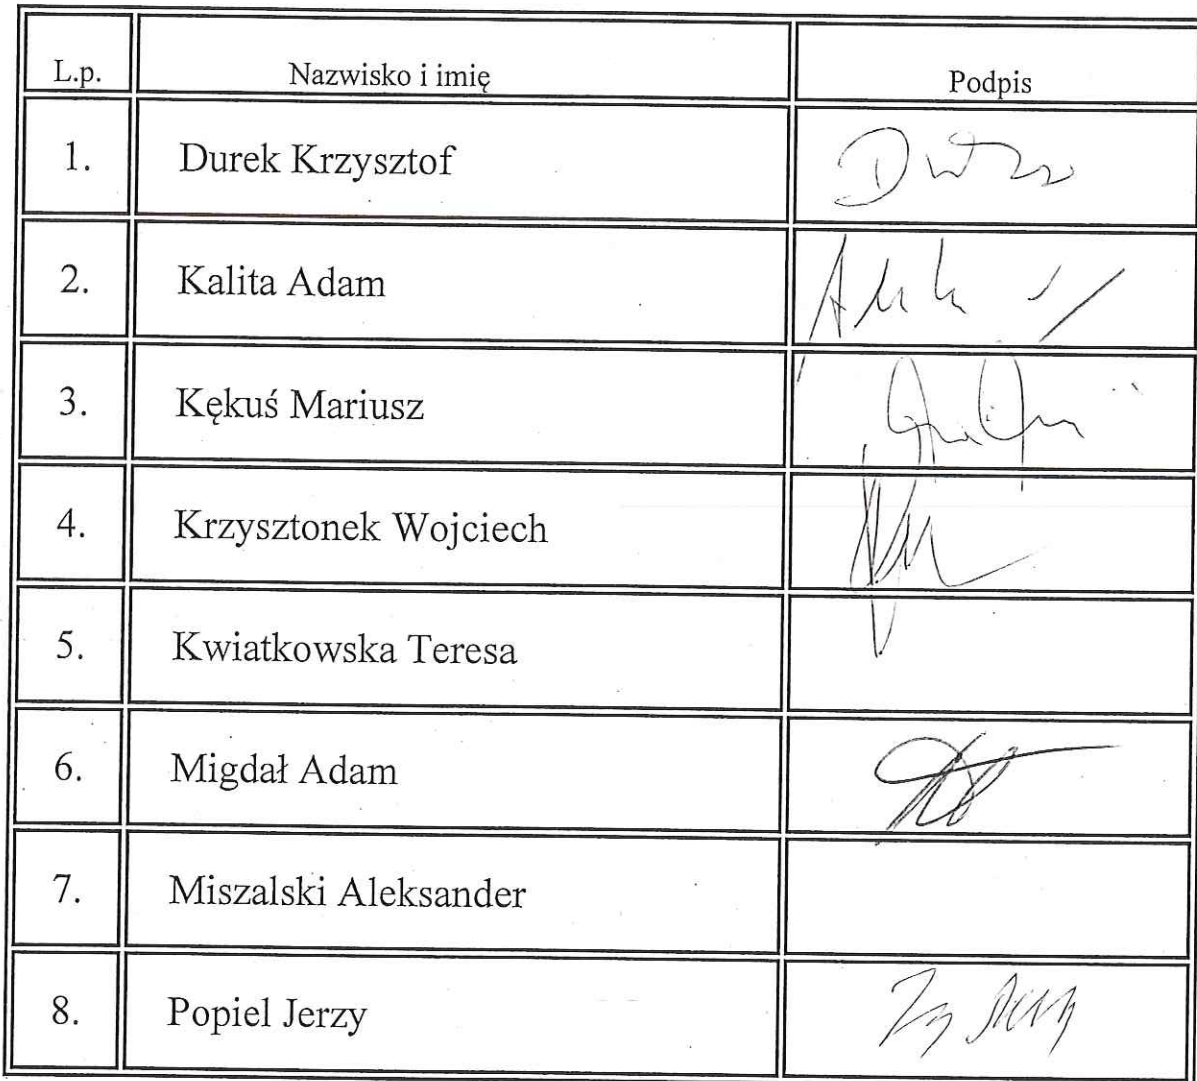 L.p. Nazwisko i imię Podpis
1. Durek Krzysztof
2. Kalita Adam
3. Kękuś Mariusz
4. Krzysztonek Wojciech
5. Kwiatkowska Teresa
6. Migdał Adam
7. Miszalski Aleksander
8. Popiel Jerzy